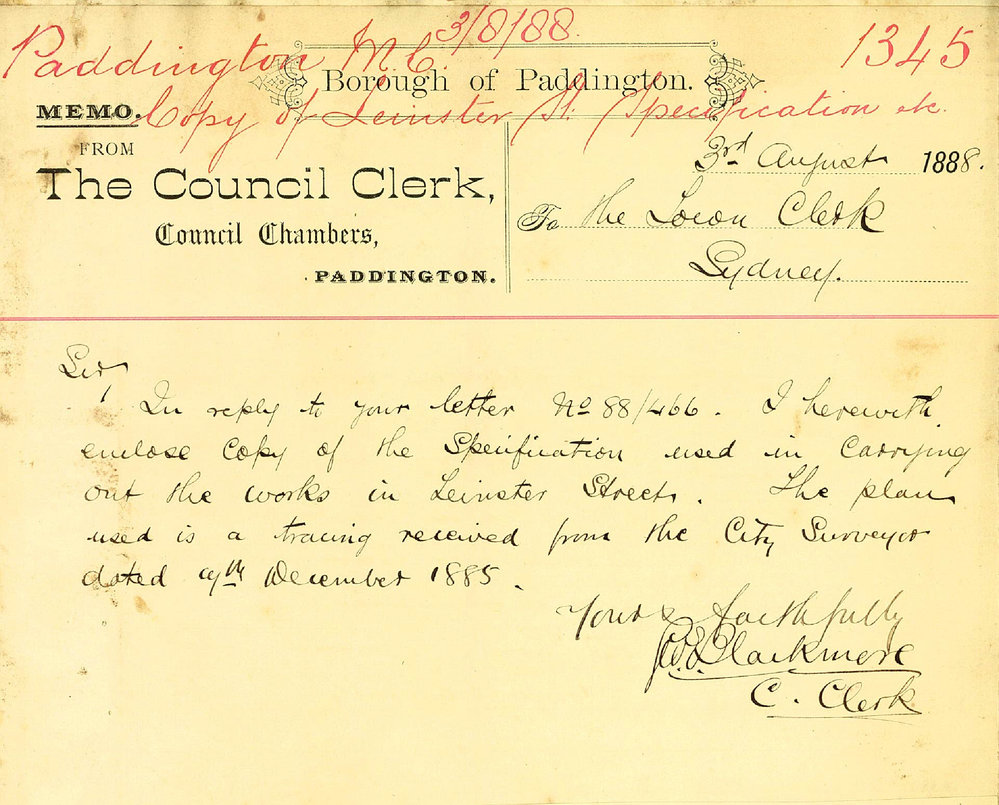 Paddington M.C. 3/8/88. 1345
Borough of Paddington.
Copy of Leinster St. Specification etc.
MEMO.
FROM
The Council Clerk,
Council Chambers,
PADDINGTON.
3rd August 1888.
To the Town Clerk
Sydney.
Sir,
In reply to your letter No 88/466. I herewith
enclose copy of the Specification used in carrying
out the works in Leinster Street. The plan
used is a tracing received from the City Surveyor
dated 9th December 1885.
Yours faithfully
Blackmore
C. Clerk